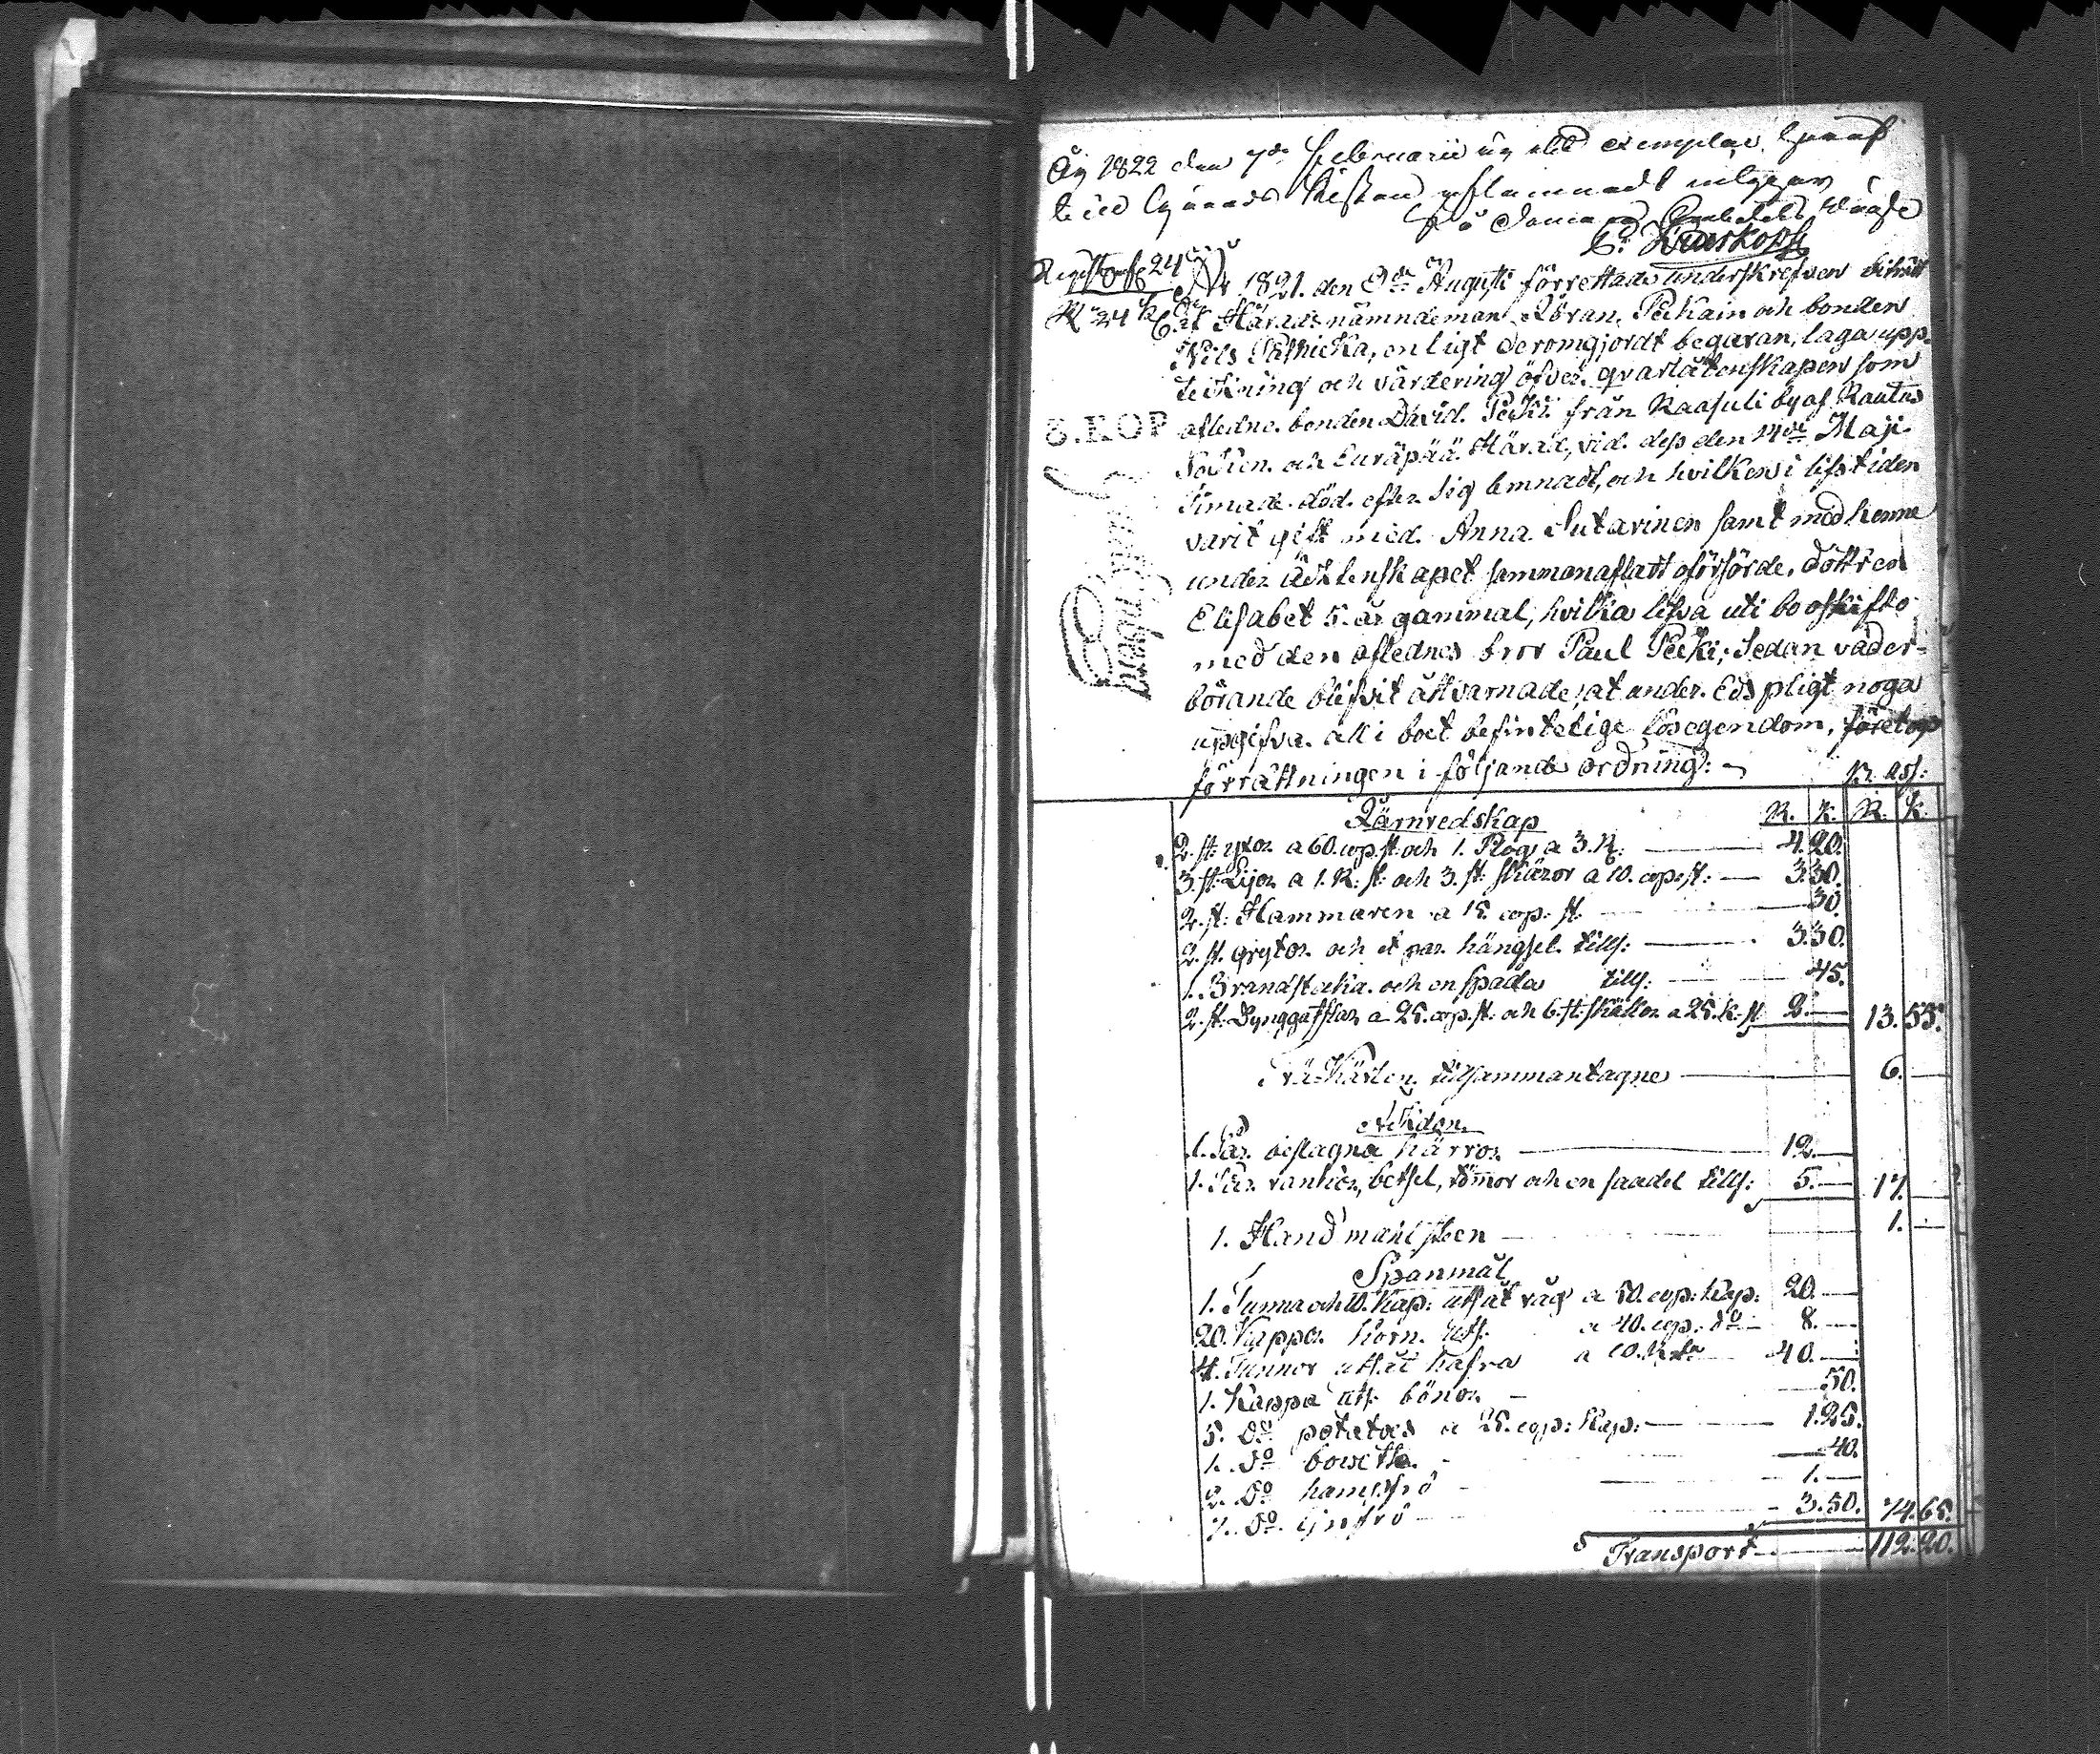 År 1822 den 7de Februarii är ett exemplar häraf
till Härads Kistan aflemnadt intygar
På Domare Embetets vägnar
År 1821. den 9de Augusti förrettade underskrefven biträdd
af Härads nämndeman Jöran Peikain och bonden
Nils, enligt derom gjordt begäran, laga upp-
tekning och värdering öfver qvarlåtenskapen som
afledne bonden David Peiki från Raasuli by af Rautus
Sokn och Euräpää Härad, vid dess den 14de Maji
timade död efter sig lemnadt, och hvilken i lifstiden
varit gift med Anna Sutarinen samt med henne
under äcktenskapet sammanaflatt oförsörde dottren
Elisabet 5. år gammal, hvilka lefva uti bo oskifto
med den aflednes bror Paul Peiki; Sedan väder-
börande blifvit åtvarnade, at under Eds pligt noga
upgifva all i boet befintelige lösegendom, företogs
förrättningen i följande ordning:
R. ass:
Järnredskap R. K. R. K.
2. st: yxor a 60. cop. st: och 1. Plog a 3. R: 4. 20.
3. st: Lijor a 1. R: st: och 3. st: skäror a 10. cop. st: 3. 30.
2. st: Hammaren a 15. cop. st. 30.
2. st. grytor och et par hängsel tills: 3. 30.
1. Brandstaka och en spada tills: 45.
2. st: Dynggafflar a 25. cop. st: och 6. st: skällor a 25. K. st 2. 13. 55.
Trä Kärlen tillsammantagne 6.
Åkdon
1. Par beslagna kärror 12.
1. Par rankior, betsel, tömor och en saadel tills: 5. 17.
1. Hand mahlsteen 1.
Spanmål
1. Tunna och 10. Kap: utsät råg a 50. cop: Kap: 20.
20. Kappar korn uts. a 40. cop. do 8.
4. Tunnor utsät hafra a 10. R. 40.
1. Kappa uts. bönor 50.
5. do potatoes a 25. cop: Kap: 1. 25.
1. do 40.
2. do hampfrö 1.
7. do linfrö 3. 50. 74. 65.
Transport 112. 20.